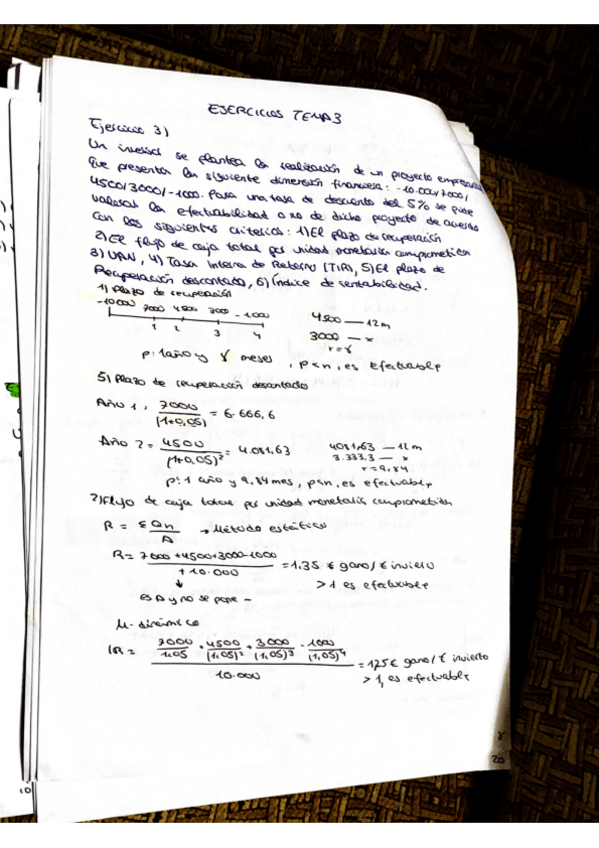 EJERCICIOS TEMA 3
Ejercicio 3)
Un inversor se plantea la realización de un proyecto empresarial
que presenta la siguiente dimensión financiera: -10.000/7000/
4500/3000/-1000. Para una tasa de descuento del 5% se pide
valorar la efectuabilidad o no de dicho proyecto de acuerdo
con los siguientes criterios: 1) El plazo de recuperación
2) El flujo de caja total por unidad monetaria comprometida
3) VAN, 4) Tasa Interna de Retorno (TIR), 5) El plazo de
Recuperación descontado, 6) Índice de rentabilidad.
1) Plazo de recuperación
-10000 7000 4500 3000 -1000
1 2 3 4
4500 — 12m
3000 — x
r = 8
p: 1 año y 8 meses, p<n, es efectuable
5) Plazo de recuperación descontado
Año 1, 7000 / (1+0,05) = 6.666,6
Año 2 = 4500 / (1+0,05)² = 4.081,63
4081,63 — 12m
3.333,3 — x
r = 9,84
p: 1 año y 9,84 mes, p<n, es efectuable
2) Flujo de caja total por unidad monetaria comprometida
R = ΣQn / A → Método estático
R = 7000+4500+3000-1000 / +10.000 = 1,35 € gano/€ invierto
> 1 es efectuable
es A y no se pone -
M. dinámico
R = 7000 / 1,05 + 4500 / (1,05)² + 3000 / (1,05)³ - 1000 / (1,05)⁴
10.000
= 1,25 € gano/€ invierto
> 1, es efectuable
8
20
10